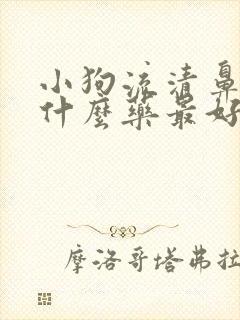 小狗流清鼻
什麼藥最好
摩洛哥塔弗拉